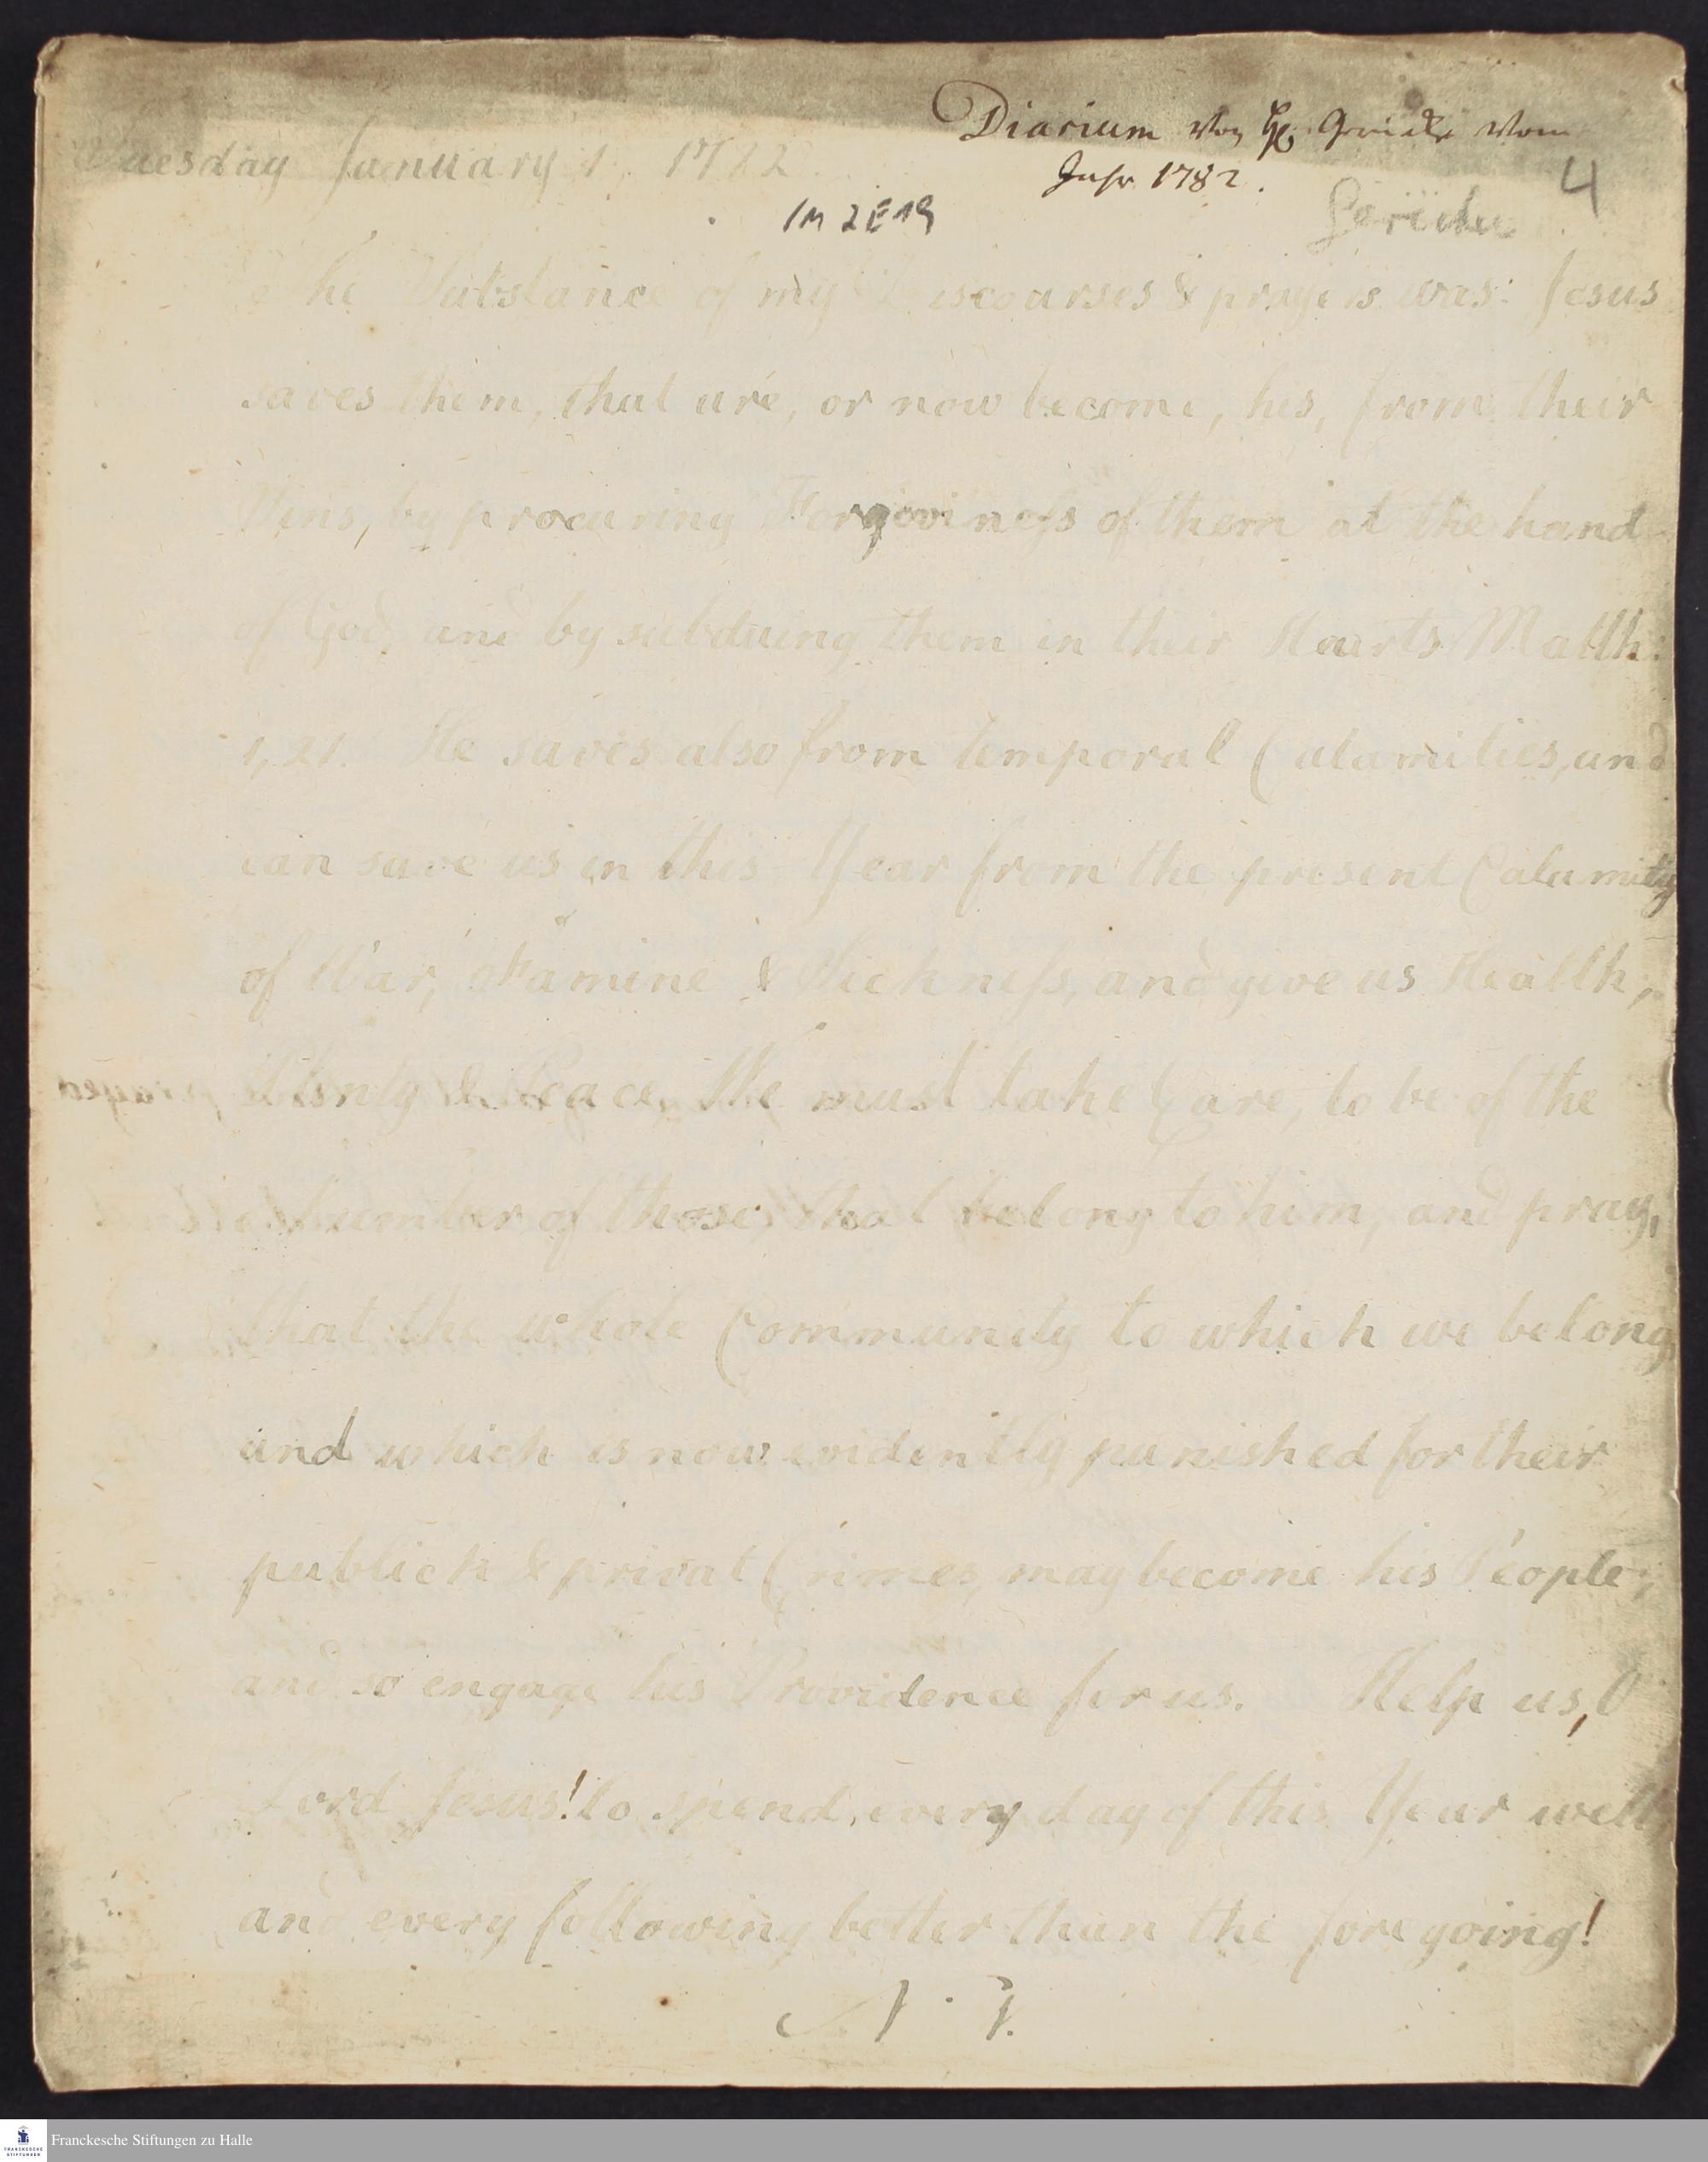 Diarium von H. Gericke vom
Jahr 1782.
Tuesday January 1. 1782.
4
1M 2E19
Gericke
The Substance of my Discourses & prayers was: Jesus
saves them, that are, or now become, his, from their
Sins, by procuring Forgiveneſs of them at the hand
of God, and by subduing them in their Hearts Matth:
1,21. He saves also from temporal Calamities, and
can save us in this Year from the present Calamity
of War, Famine & Sickneſs, and give us Health,
Plenty & Peace. We must take Care, to be of the
Number of those, that belong to him, and pray,
that the whole Community to which we belong,
and which is now evidently punished for their
publick & privat Crimes, may become his People,
and so engage his Providence for us. Help us, O
Lord Jesus! to spend every day of this Year well
and every following better than the foregoing!
Franckesche Stiftungen zu Halle